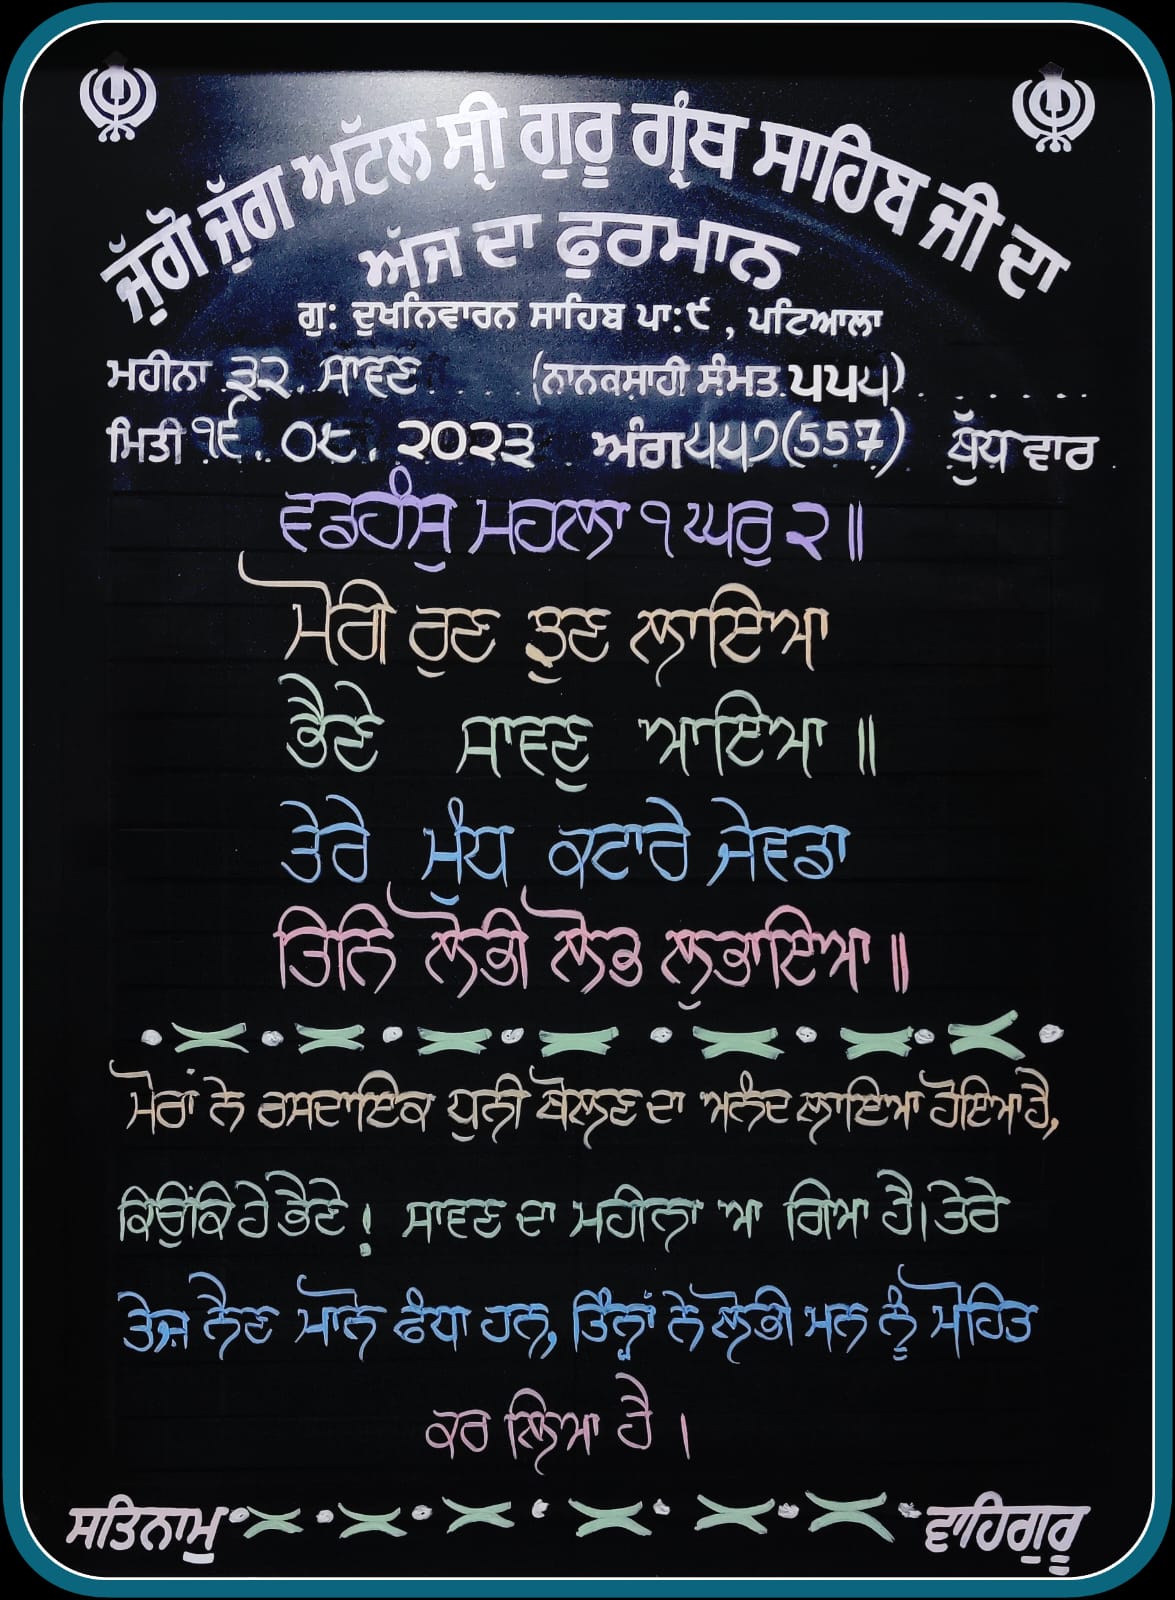 ਜੁੱਗੋ ਜੁੱਗ ਅਟੱਲ ਸ੍ਰੀ ਗੁਰੂ ਗ੍ਰੰਥ ਸਾਹਿਬ ਜੀ ਦਾ
ਅੱਜ ਦਾ ਫੁਰਮਾਨ
ਗੁ: ਦੁਖਨਿਵਾਰਨ ਸਾਹਿਬ ਪਾ:੯ , ਪਟਿਆਲਾ
ਮਹੀਨਾ ੩੨ ਸਾਵਣ (ਨਾਨਕਸਾਹੀ ਸੰਮਤ ੫੫੫)
ਮਿਤੀ ੧੬. ੦੮. ੨੦੨੩ ਅੰਗ ੫੫੭ (557) ਬੁੱਧ ਵਾਰ
ਵਡਹੰਸੁ ਮਹਲਾ ੧ ਘਰੁ ੨ ॥
ਮੋਰੀ ਰੁਣ ਝੁਣ ਲਾਇਆ
ਭੈਣੇ ਸਾਵਣੁ ਆਇਆ ॥
ਤੇਰੇ ਮੁੰਧ ਕਟਾਰੇ ਜੇਵਡਾ
ਤਿਨਿ ਲੋਭੀ ਲੋਭ ਲੁਭਾਇਆ ॥
ਮੋਰਾਂ ਨੇ ਰਸਦਾਇਕ ਧੁਨੀ ਬੋਲਣ ਦਾ ਅਨੰਦ ਲਾਇਆ ਹੋਇਆ ਹੈ,
ਕਿਉਂਕਿ ਹੇ ਭੈਣੇ ! ਸਾਵਣ ਦਾ ਮਹੀਨਾ ਆ ਗਿਆ ਹੈ। ਤੇਰੇ
ਤੇਜ਼ ਨੈਣ ਮਾਨੋ ਫੰਧਾ ਹਨ, ਤਿੰਨ੍ਹਾਂ ਨੇ ਲੋਭੀ ਮਨ ਨੂੰ ਮੋਹਿਤ
ਕਰ ਲਿਆ ਹੈ ।
ਸਤਿਨਾਮੁ ਵਾਹਿਗੁਰੂ